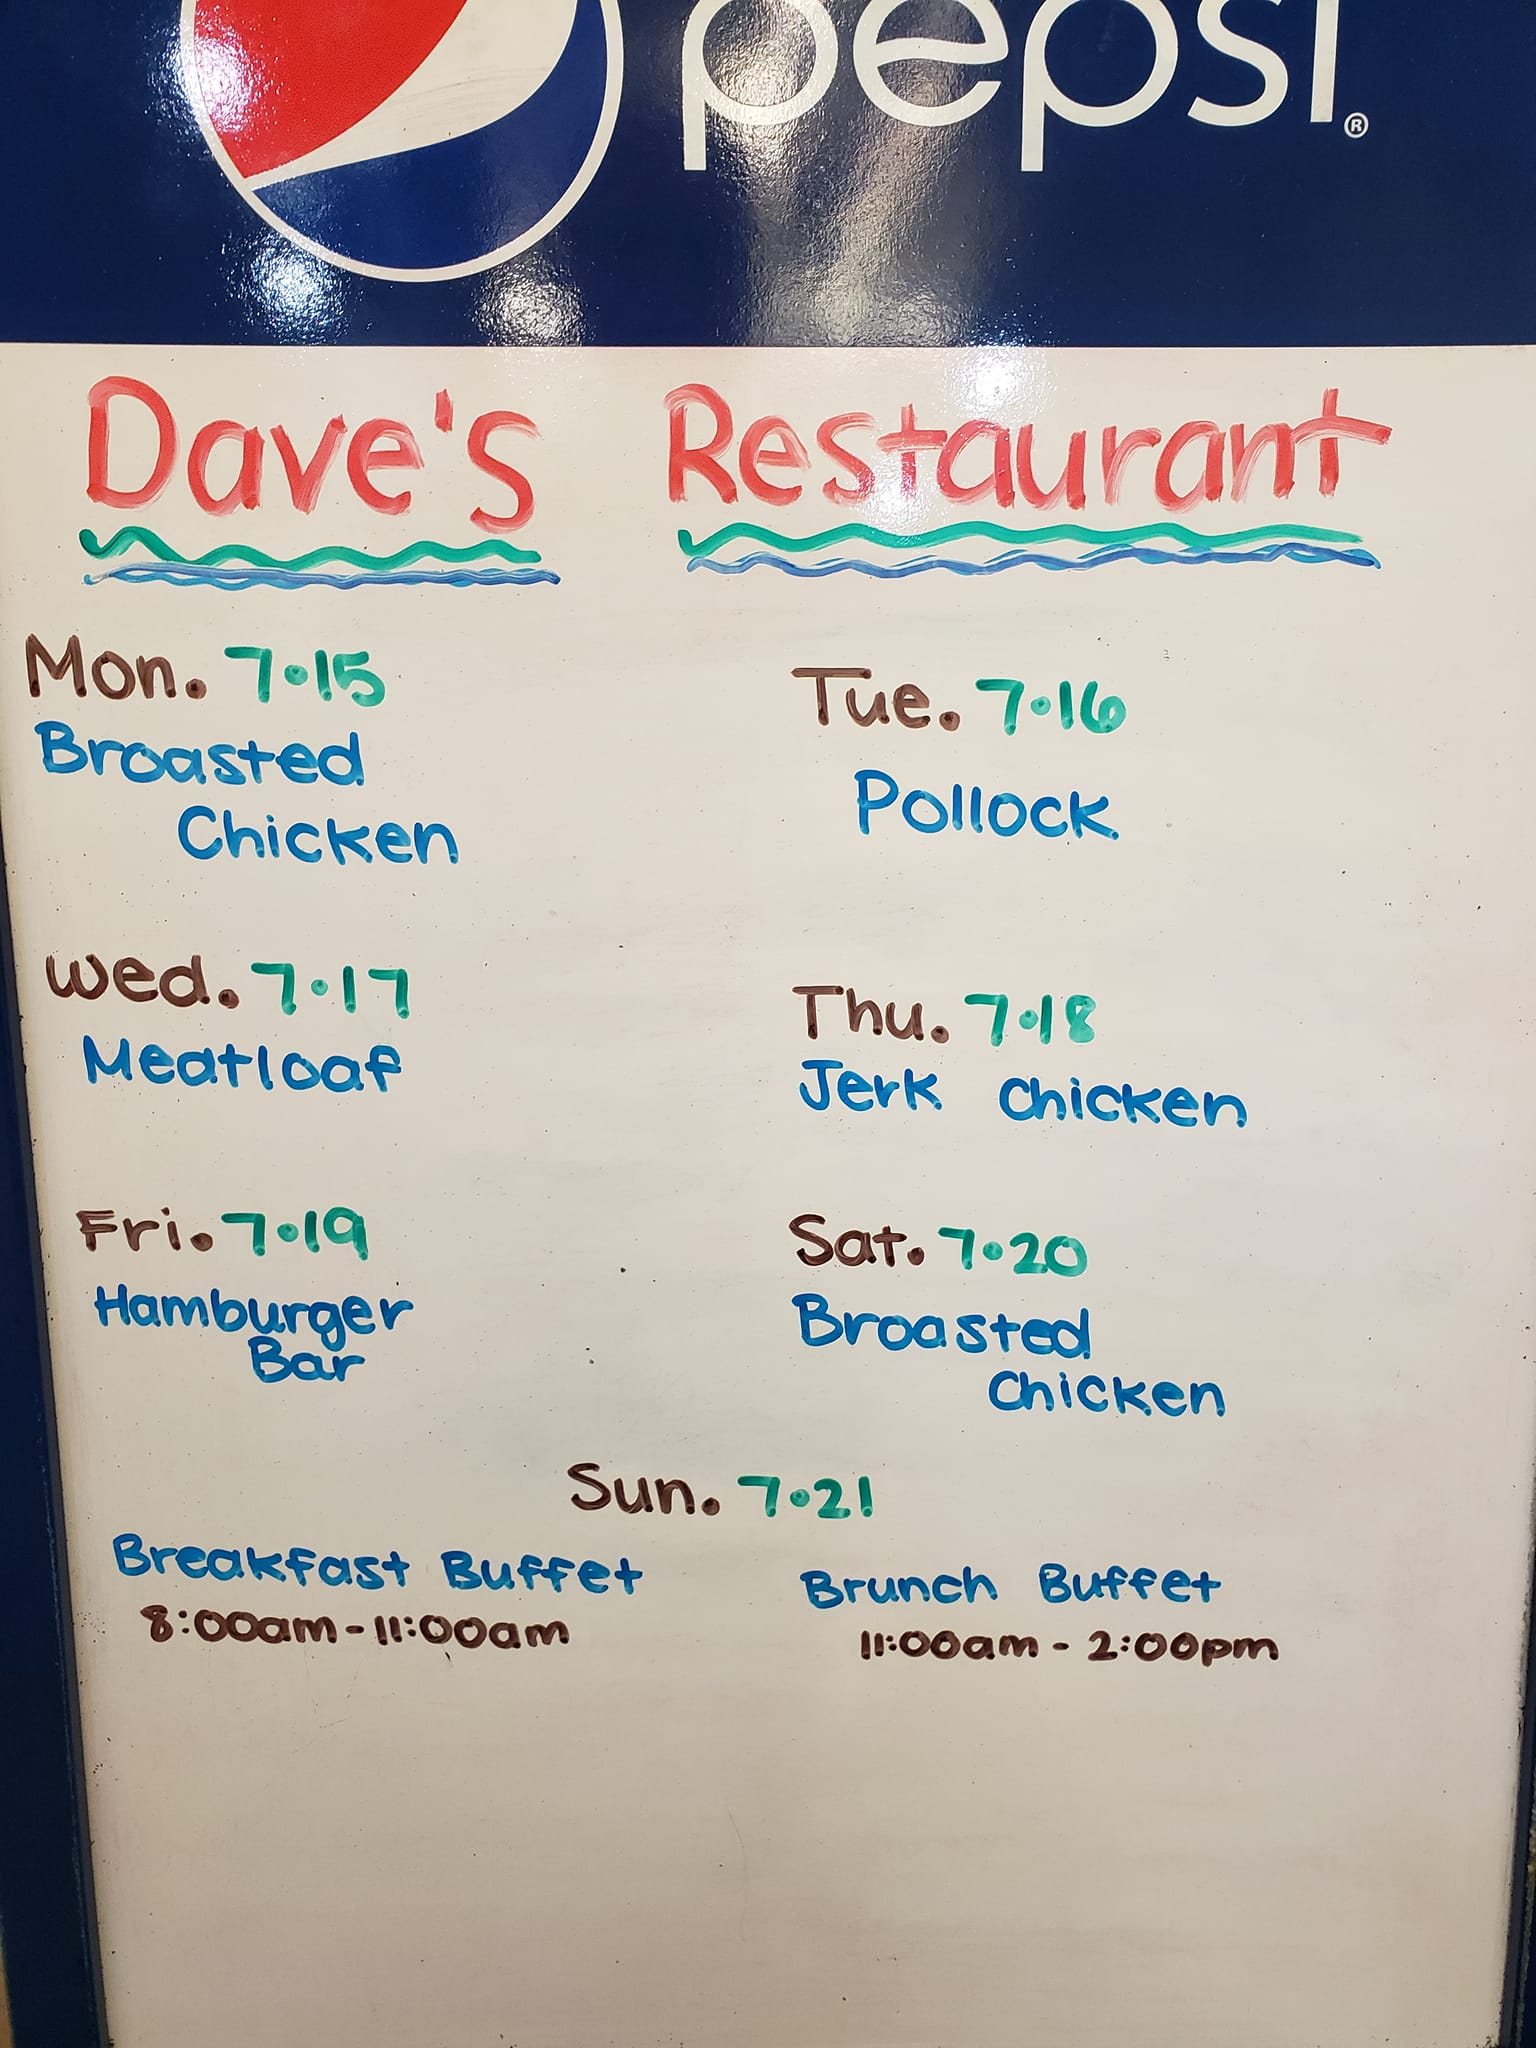 pepsi®
Dave's Restaurant
Mon. 7•15
Broasted
Chicken
Tue. 7•16
Pollock
Wed. 7•17
Meatloaf
Thu. 7•18
Jerk Chicken
Fri. 7•19
Hamburger
Bar
Sat. 7•20
Broasted
Chicken
Sun. 7•21
Breakfast Buffet
8:00am-11:00am
Brunch Buffet
11:00am - 2:00pm